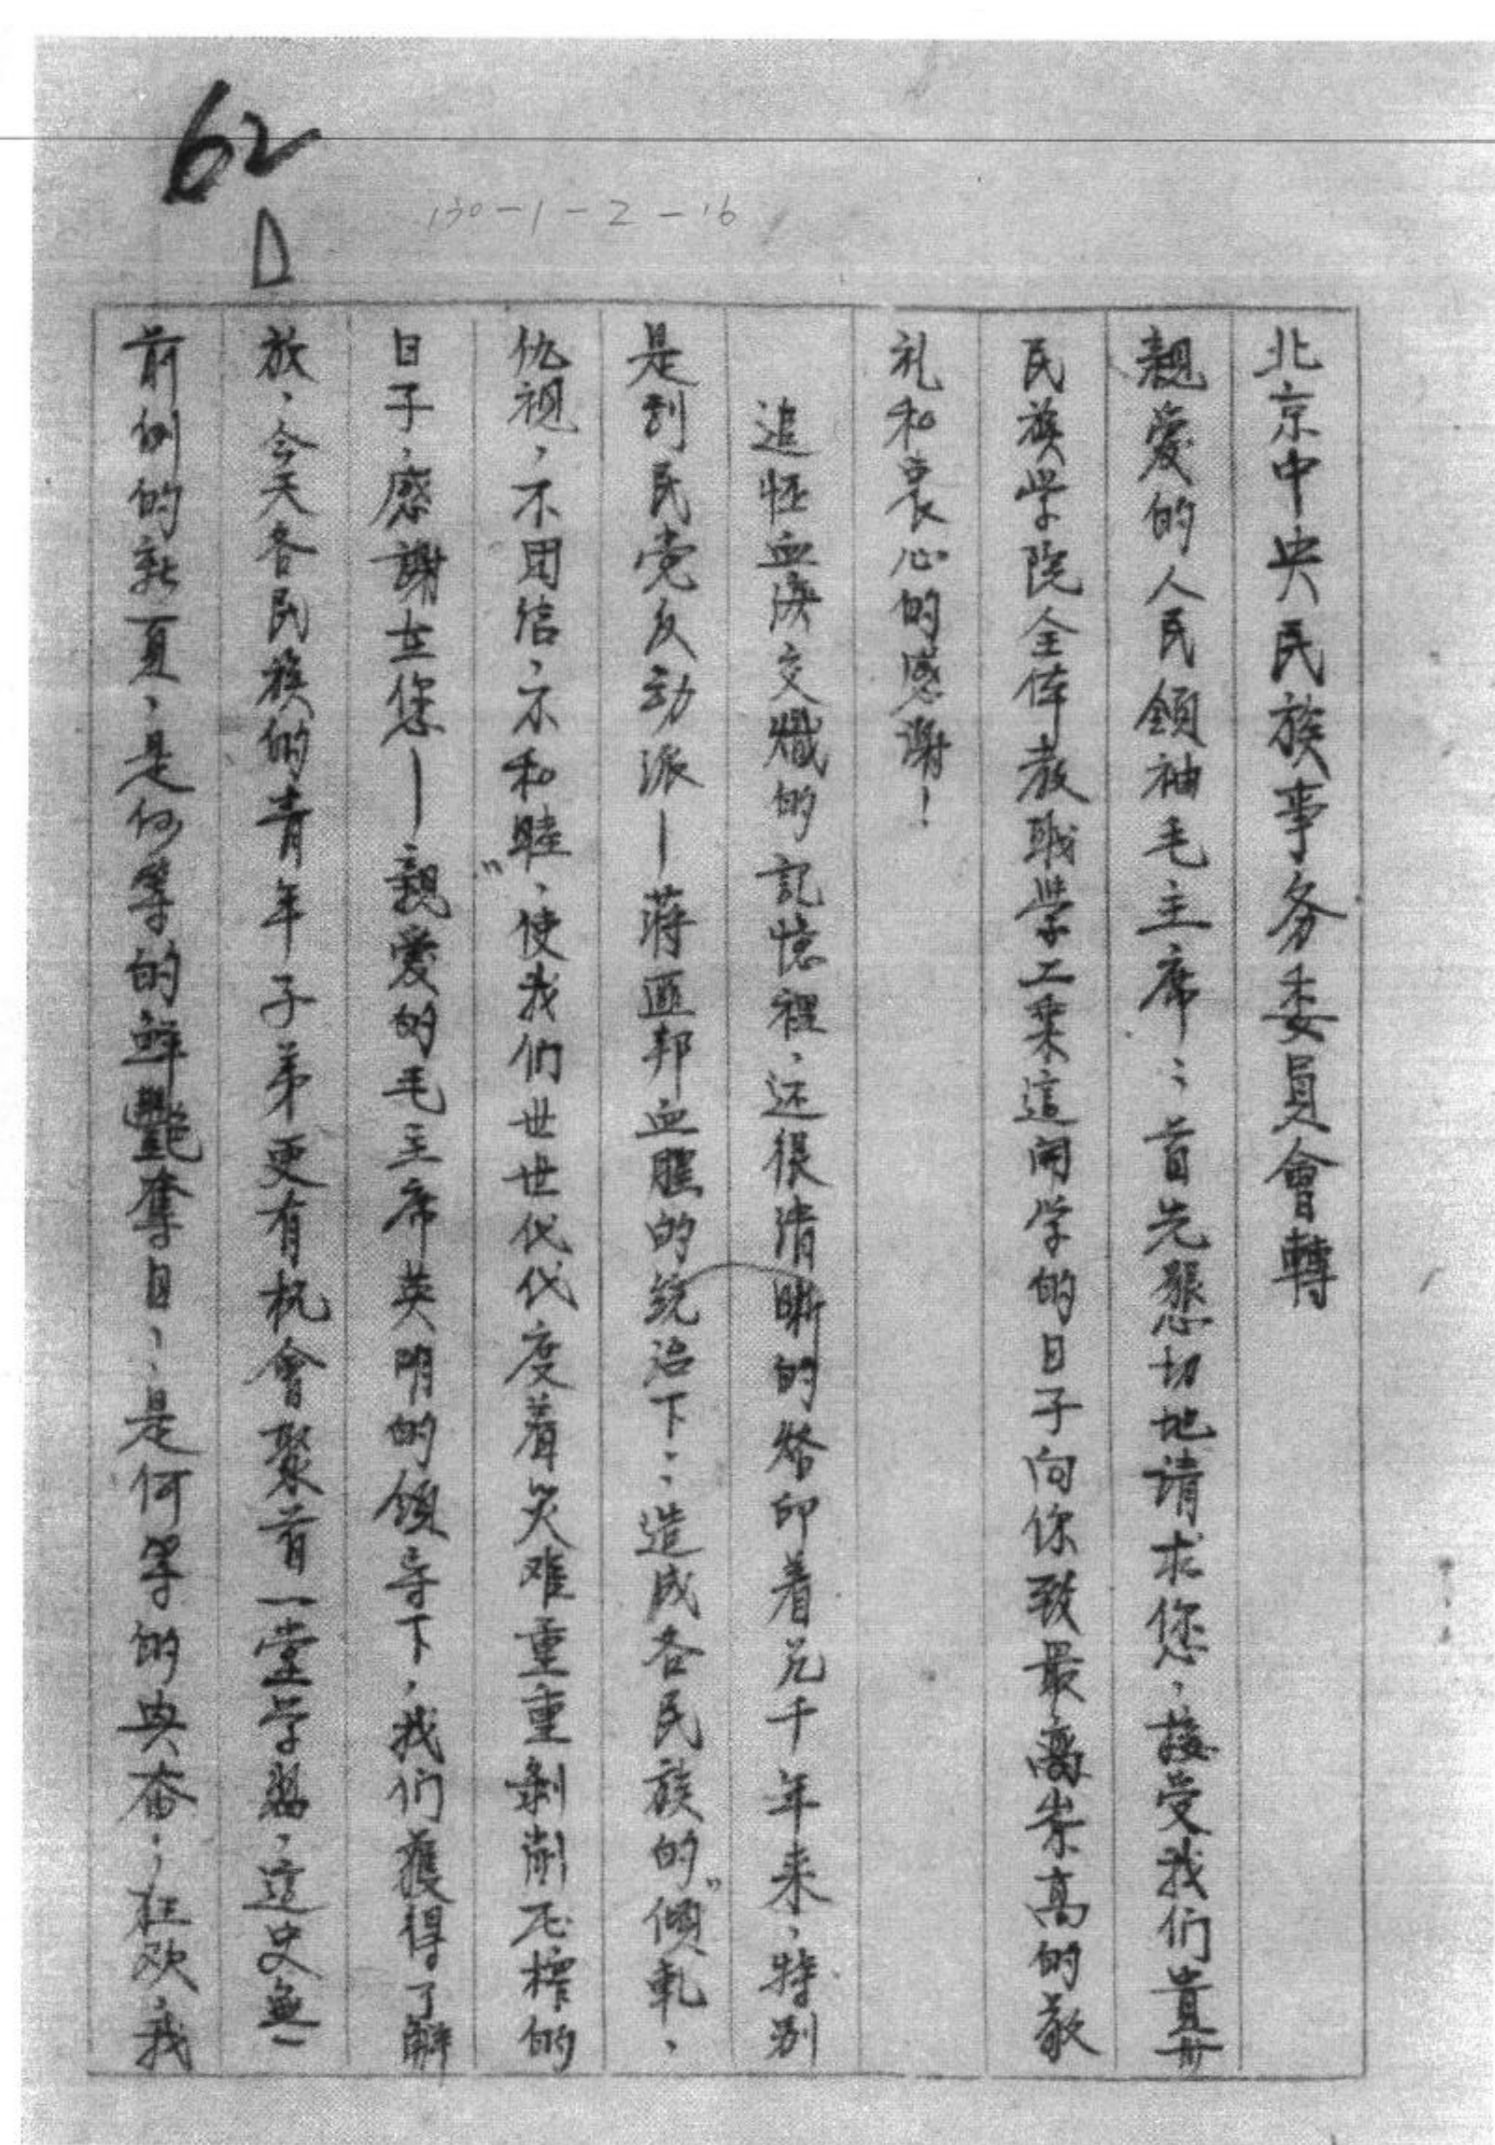 62
D
130-1-2-16
北京中央民族事务委員會轉
親愛的人民領袖毛主席：首先懇切地请求您，接受我们貴州
民族学院全体教職学工来這闹学的日子向你致最高崇高的敬
礼和衷心的感谢！
追怀血淚交織的記憶裡，还很清晰的烙印着几千年来，特别
是刮民党反动派—蒋匪邦血腥的统治下：造成各民族的“傾軋，
仇视，不团结，不和睦”，使我们世世代代度着災难重重剝削压榨的
日子，感謝在您—親愛的毛主席英明的領导下，我们獲得了解
放，今天各民族的青年子弟更有机會聚首一堂学習，這史無
前例的新一頁，是何等的鮮艷奪目，是何等的兴奋；狂欢，我